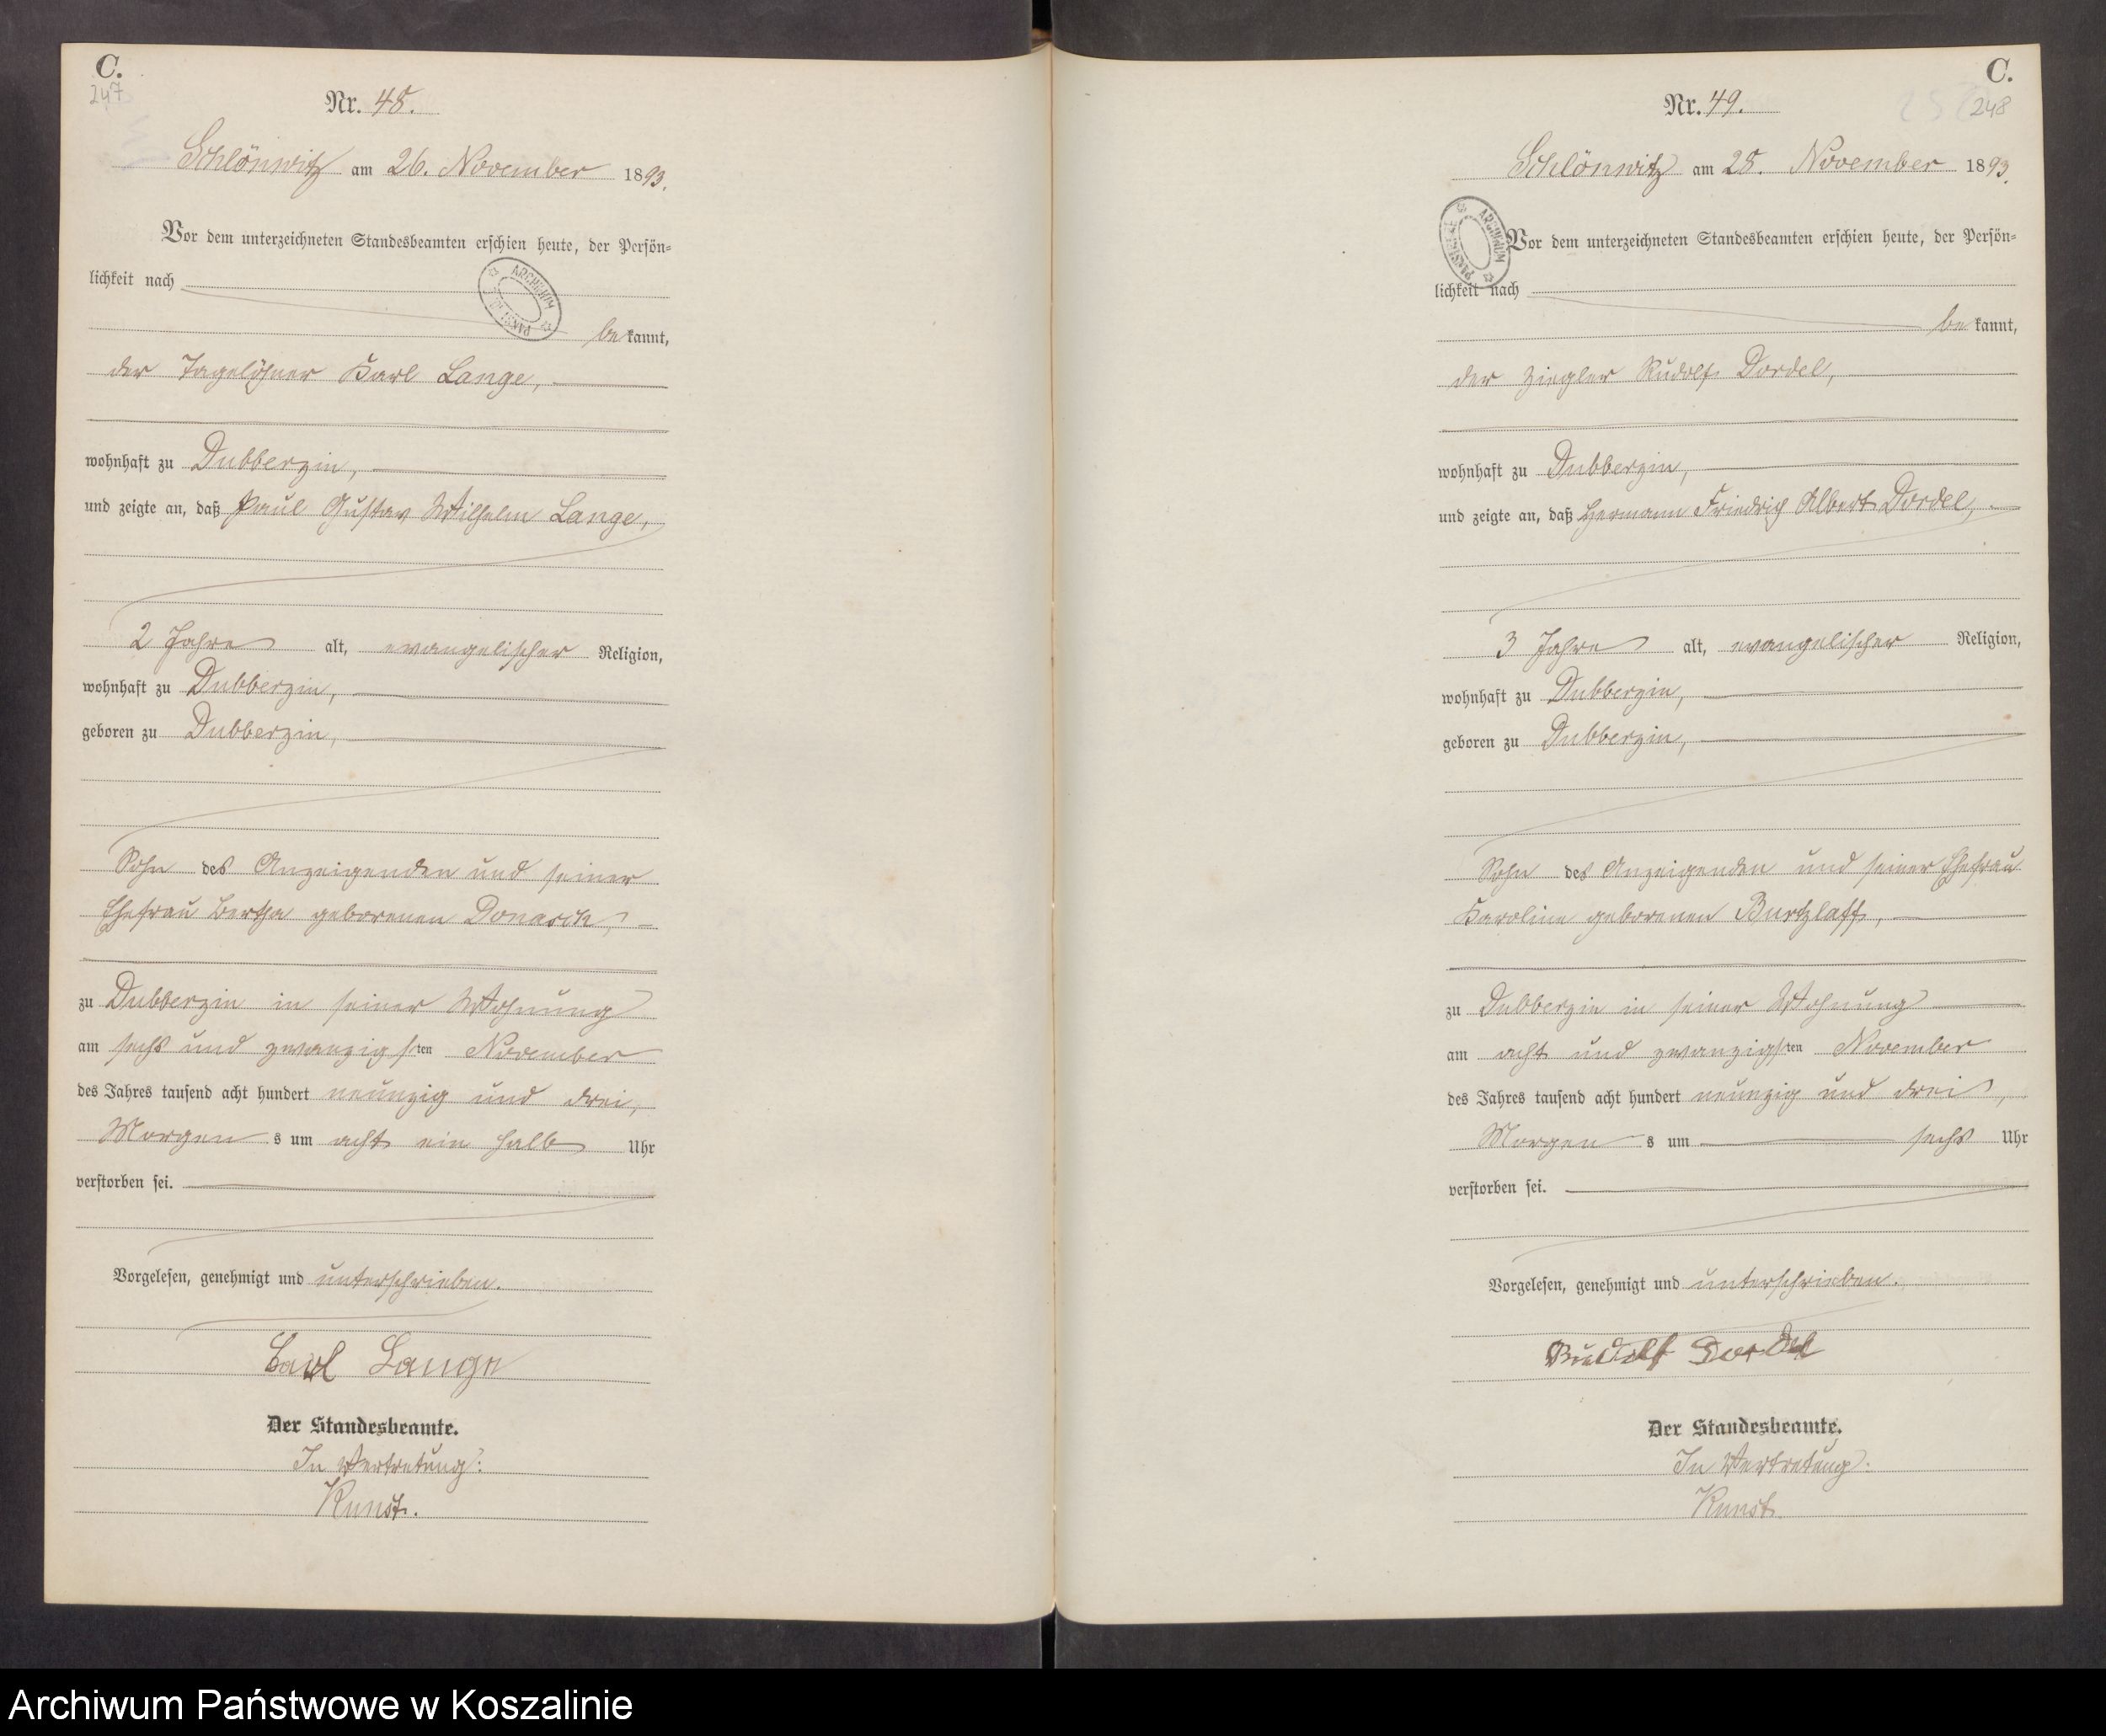 C.
247
Nr. 48.
Schlönwitz am 26. November 1893.
Vor dem unterzeichneten Standesbeamten erschien heute, der Persön=
lichkeit nach
be kannt,
der Tagelöhner Karl Lange,
wohnhaft zu Dubberzin,
und zeigte an, daß Paul Gustav Wilhelm Lange,
2 Jahre alt, evangelischer Religion,
wohnhaft zu Dubberzin,
geboren zu Dubberzin,
Sohn des Anzeigenden und seiner
Ehefrau Bertha geborenen
zu Dubberzin in seiner Wohnung
am sechs und zwanzigsten November
des Jahres tausend acht hundert neunzig und drei,
Morgen s um acht ein halb Uhr
verstorben sei.
Vorgelesen, genehmigt und unterschrieben.
Carl Lange
Der Standesbeamte.
In Vertretung:
Kunst.
C.
248
Nr. 49.
Schlönwitz am 28. November 1893.
ARCHIWUM
Vor dem unterzeichneten Standesbeamten erschien heute, der Persön=
lichkeit nach
be kannt,
der Ziegler Rudolf Dordel,
wohnhaft zu Dubberzin,
und zeigte an, daß Hermann Friedrich Albert Dordel,
3 Jahre alt, evangelischer Religion,
wohnhaft zu Dubberzin,
geboren zu Dubberzin,
Sohn des Anzeigenden und seiner Ehefrau
Karoline geborenen Burtzlaff,
zu Dubberzin in seiner Wohnung
am acht und zwanzigsten November
des Jahres tausend acht hundert neunzig und drei,
Morgen s um sechs Uhr
verstorben sei.
Vorgelesen, genehmigt und unterschrieben.
Rudolf Dordel
Der Standesbeamte.
In Vertretung:
Kunst.
Archiwum Państwowe w Koszalinie